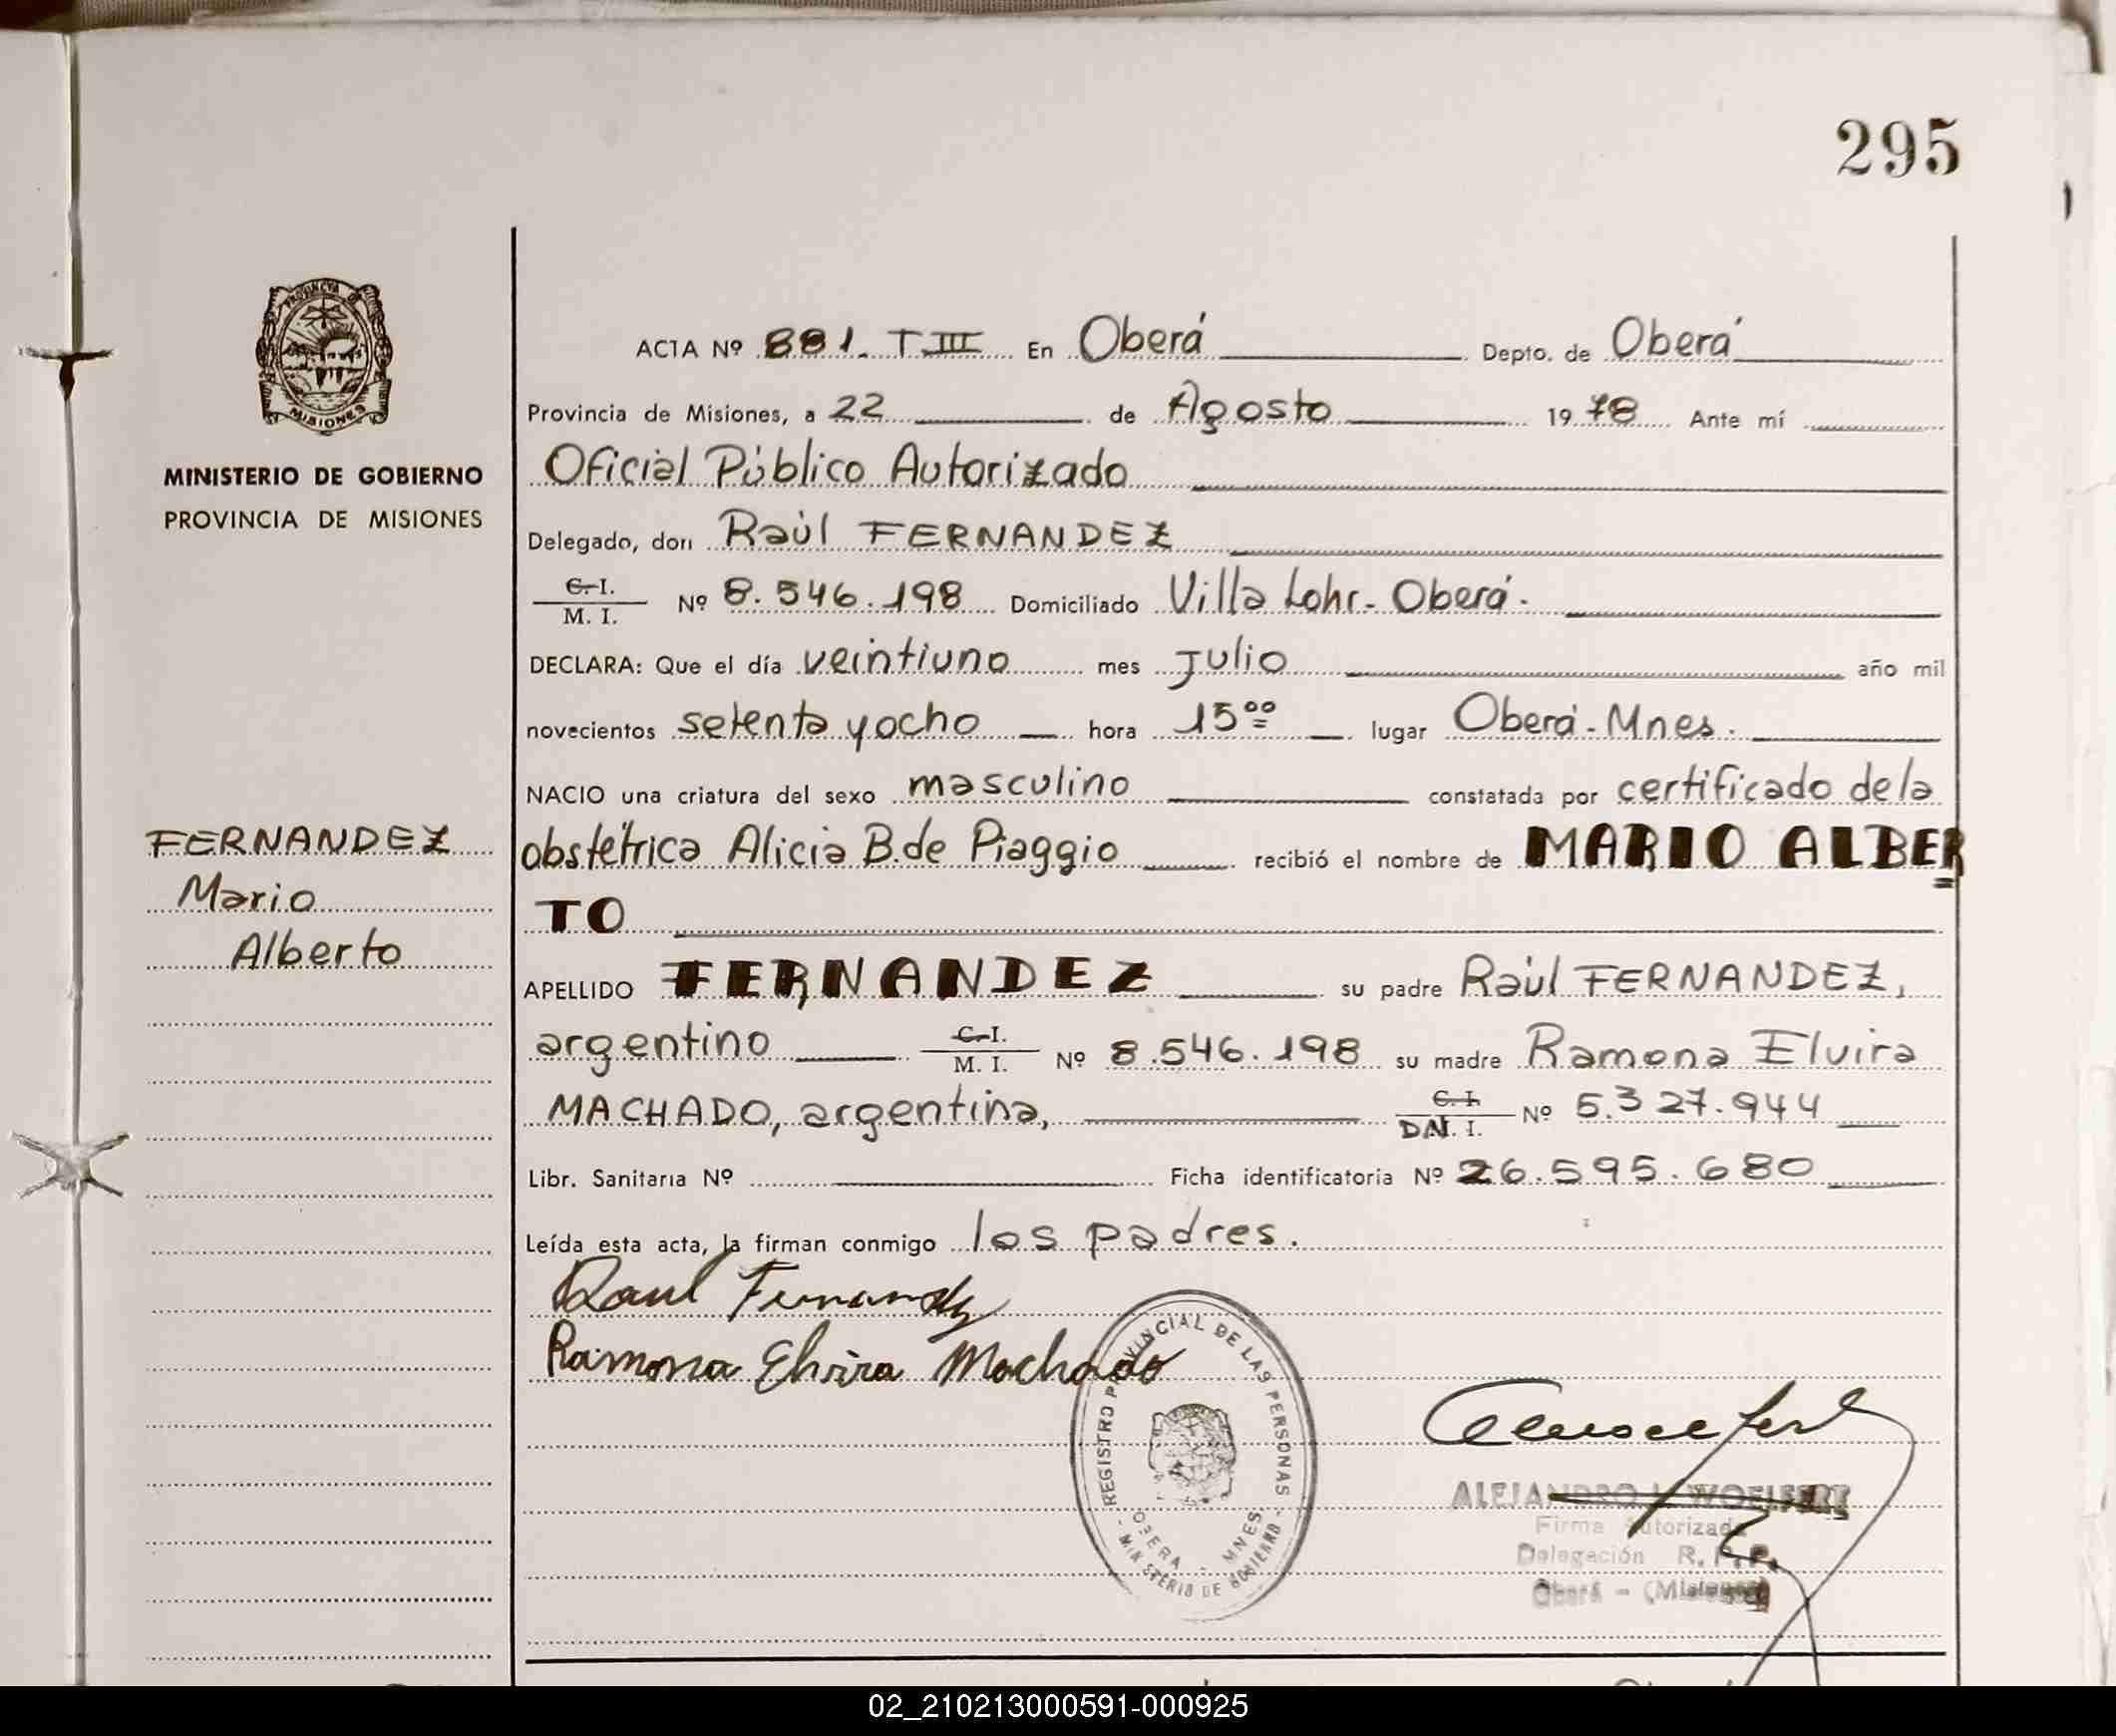 295
PROVINCIA DE
MISIONES
MINISTERIO DE GOBIERNO
PROVINCIA DE MISIONES
FERNANDEZ
Mario
Alberto
ACTA Nº 881. T III En Oberá Depto. de Oberá
Provincia de Misiones, a 22 de Agosto 1978 Ante mí
Oficial Público Autorizado
Delegado, don Raúl FERNANDEZ
C. I.
M. I. Nº 8.546.198 Domiciliado Villa Lohr - Oberá -
DECLARA: Que el día veintiuno mes Julio año mil
novecientos setenta y ocho hora 15 00 lugar Oberá - Mnes.
NACIO una criatura del sexo masculino constatada por certificado de la
obstétrica Alicia B. de Piaggio recibió el nombre de MARIO ALBER
TO
APELLIDO FERNANDEZ su padre Raúl FERNANDEZ,
argentino C. I.
M. I. Nº 8.546.198 su madre Ramona Elvira
MACHADO, argentina, C. I.
DNI. I. Nº 5.327.944
Libr. Sanitaria Nº Ficha identificatoria Nº 26.595.680
Leída esta acta, la firman conmigo los padres.
Raul Fernandez
Ramona Elvira Machado
REGISTRO PROVINCIAL DE LAS PERSONAS
OBERA - MNES
- MINISTERIO DE GOBIERNO -
ALEJANDRO WOELFERT
Firma Autorizada
Delegación R. P. P.
Oberá - (Misiones)
02_210213000591-000925